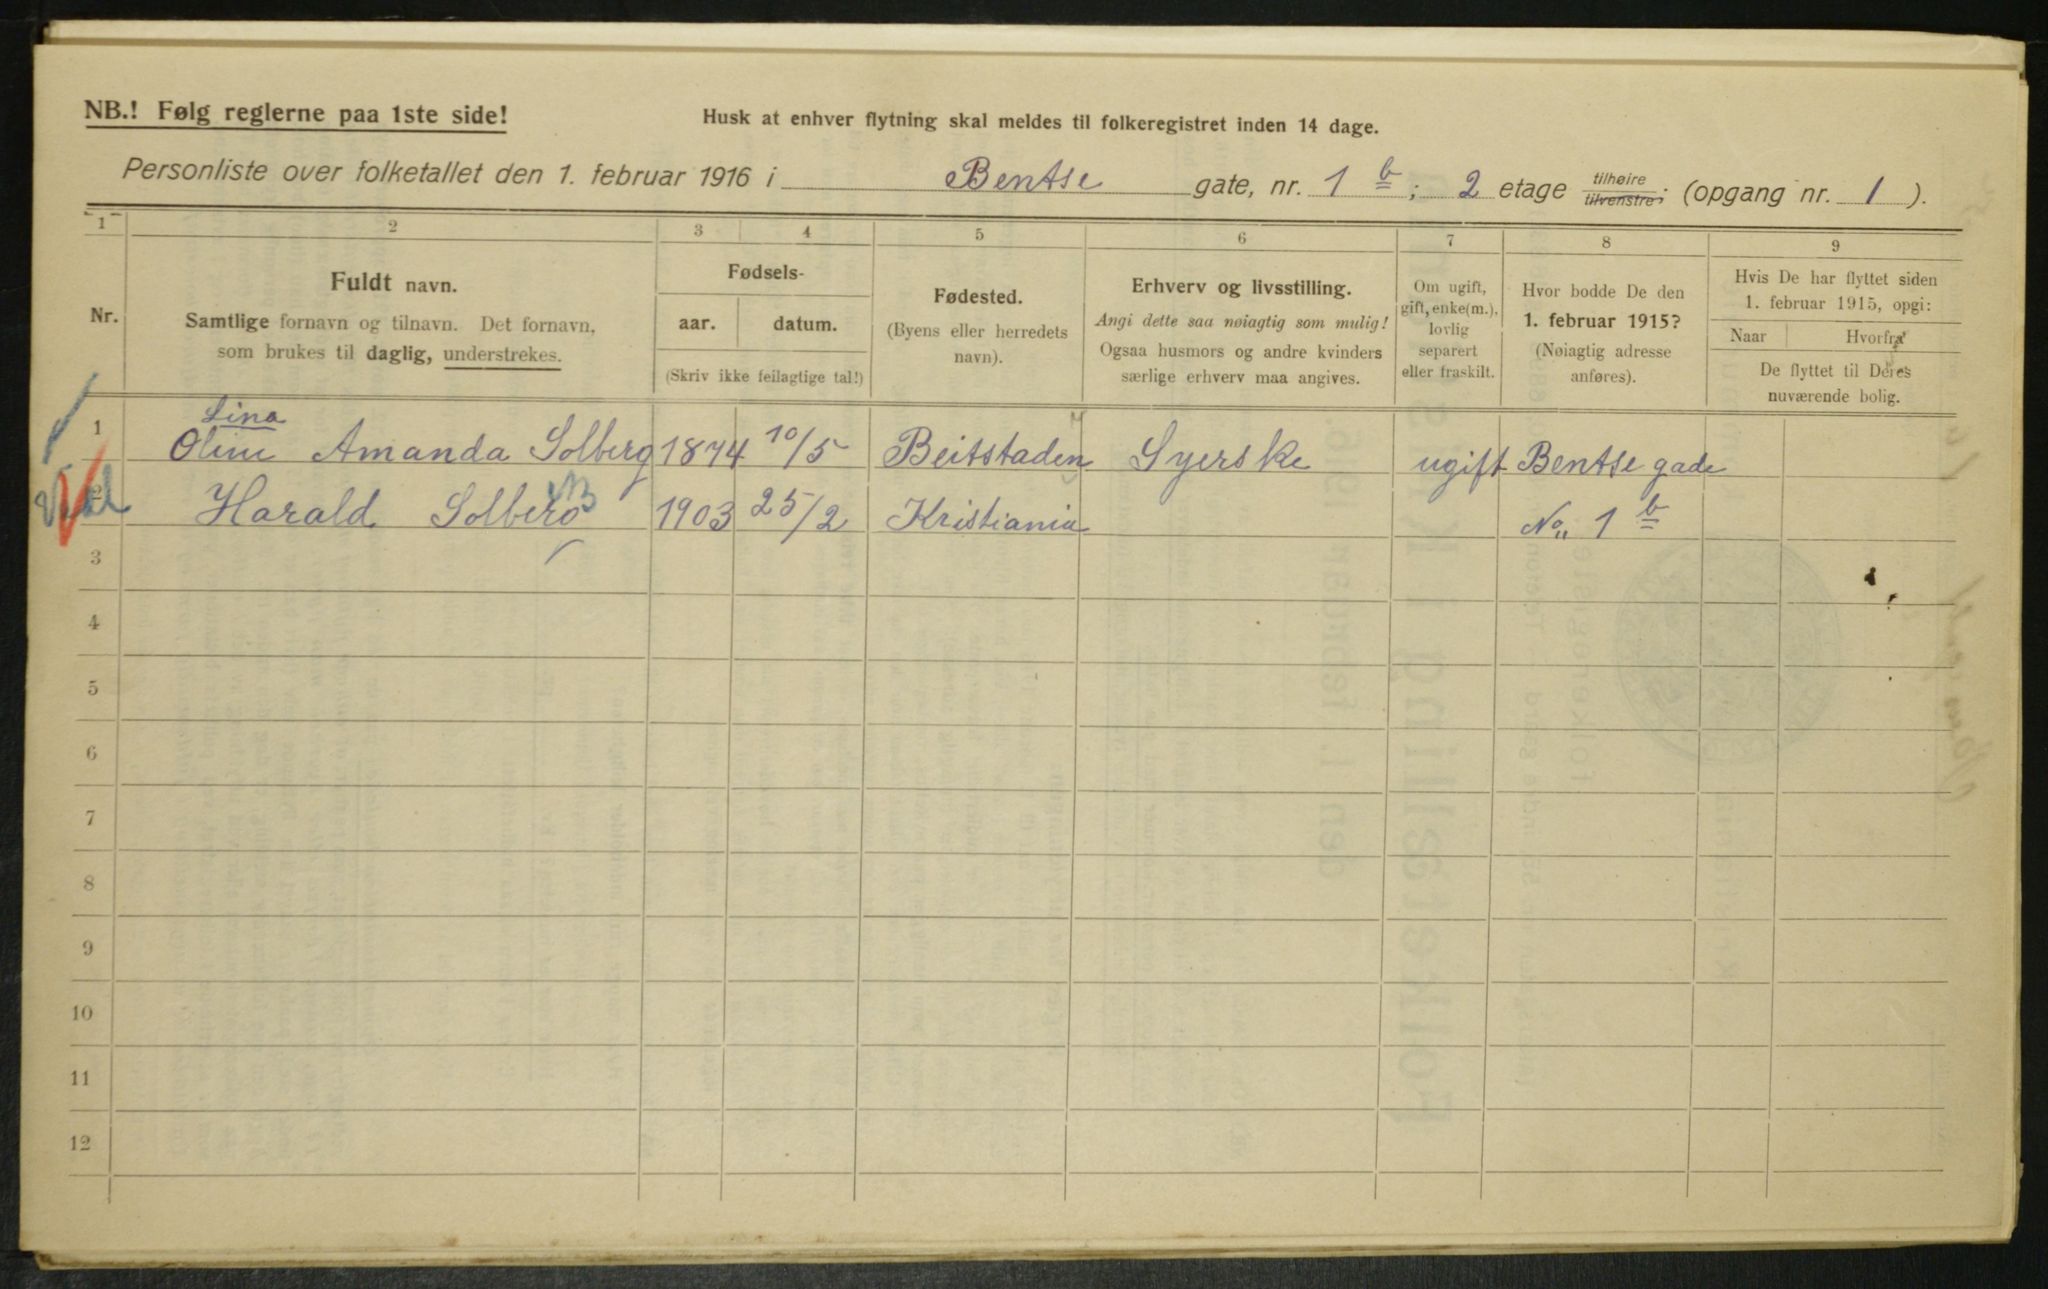 NB.! Følg reglerne paa 1ste side!
Husk at enhver flytning skal meldes til folkeregistret inden 14 dage.
Personliste over folketallet den 1. februar 1916 i Bentse gate, nr. 1 b; 2 etage tilhøire tilvenstre; (opgang nr. 1).
1 2 3 4 5 6 7 8 9
Nr.
Fuldt navn.
Samtlige fornavn og tilnavn. Det fornavn,
som brukes til daglig, understrekes.
Fødsels-
aar. datum.
(Skriv ikke feilagtige tal!)
Fødested.
(Byens eller herredets
navn).
Erhverv og livsstilling.
Angi dette saa nøiagtig som mulig!
Ogsaa husmors og andre kvinders
særlige erhverv maa angives.
Om ugift,
gift, enke(m.),
lovlig
separert
eller fraskilt.
Hvor bodde De den
1. februar 1915?
(Nøiagtig adresse
anføres).
Hvis De har flyttet siden
1. februar 1915, opgi:
Naar Hvorfra
De flyttet til Deres
nuværende bolig.
Lina
1 Oline Amanda Solberg 1874 10/5 Beitstaden Syerske ugift Bentse gade
2 Harald Solberg 1903 25/2 Kristiania No 1 b
3
4
5
6
7
8
9
10
11
12